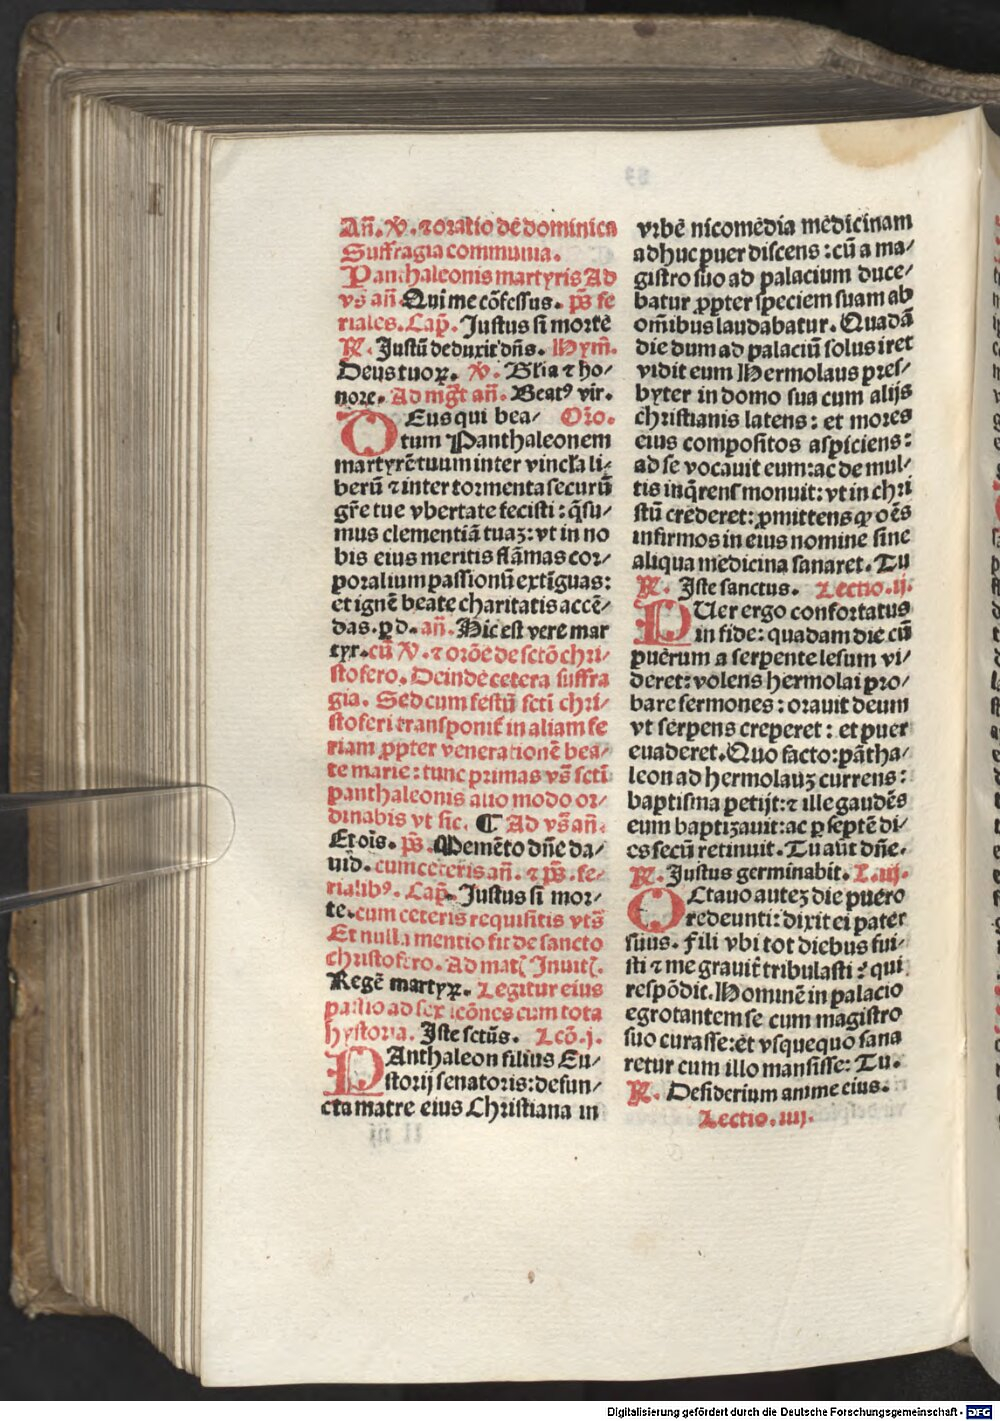 Añ. ℣. ⁊ oratio de dominica
Suffragia communia.
Panthaleonis martyris Ad
vs añ. Qui me cōfessus. p̄s fe
riales. Cap̄. Justus si morte
℟. Justū deduxit dn̄s. Hym̄.
Deus tuoꝝ. ℣. Gl̄ia ⁊ ho⸗
nore. Ad mg̅t añ. Beatꝰ vir.
DEus qui bea⸗ Or̄o.
tum Panthaleonem
martyrē tuum inter vincl̄a li⸗
berū ⁊ inter tormenta securū
gr̄e tue vbertate fecisti: q̄su⸗
mus clementiā tuaꝫ: vt in no
bis eius meritis flāmas cor⸗
poralium passionū extīguas:
et ignē beate charitatis accē⸗
das. ꝑ d. añ. Hic est vere mar
tyr. cū ℣. ⁊ orōe de sctō chri⸗
stofero. Deinde cetera suffra
gia. Sed cum festū scti chri⸗
stoferi transponit̄ in aliam fe
riam ꝓpter venerationē bea⸗
te marie: tunc primas vs̄ scti
panthaleonis alio modo or⸗
dinabis vt sic. ¶ Ad vs̄ añ.
Et oīs. p̄s. Memēto dn̄e da⸗
uid. cum ceteris añ. ⁊ p̄s. fe⸗
rialibꝰ. Cap̄. Justus si mor⸗
te. cum ceteris requisitis vts̄
Et nulla mentio fit de sancto
christofero. Ad mat̄ Inuit̄.
Regē martyꝝ. Legitur eius
passio ad sex lcōnes cum tota
hystoria. Iste sctūs. Lcō. j.
PAnthaleon filius Eu⸗
storij senatoris: defun⸗
cta matre eius Christiana in
vrbē nicomēdia mēdicinam
adhuc puer discens: cū a ma⸗
gistro suo ad palacium duce⸗
batur ꝓpter speciem suam ab
om̄ibus laudabatur. Quadā
die dum ad palaciū solus iret
vidit eum Hermolaus pres⸗
byter in domo sua cum alijs
christianis latens: et mores
eius compositos aspiciens:
ad se vocauit eum: ac de mul⸗
tis inq̄rens monuit: vt in chri
stū crederet: ꝓmittens ꝙ oēs
infirmos in eius nomine sine
aliqua medicina sanaret. Tu
℟. Iste sanctus. Lectio. ij.
PUer ergo confortatus
in fide: quadam die cū
puerum a serpente lesum vi⸗
deret: volens hermolai pro⸗
bare sermones: orauit deum
vt serpens creperet: et puer
euaderet. Quo facto: pātha⸗
leon ad hermolauꝫ currens:
baptisma petijt: ⁊ ille gaudēs
eum baptizauit: ac ꝑ septē di⸗
es secū retinuit. Tu aūt dn̄e.
℟. Justus germinabit. L. iij.
OCtauo auteꝫ die puero
redeunti: dixit ei pater
suus. Fili vbi tot diebus fui⸗
sti ⁊ me grauit̄ tribulasti? qui
respōdit. Hominē in palacio
egrotantem se cum magistro
suo curasse: et vsquequo sana
retur cum illo mansisse: Tu.
℟. Desiderium anime eius.
Lectio. iiij.
Digitalisierung gefördert durch die Deutsche Forschungsgemeinschaft - DFG